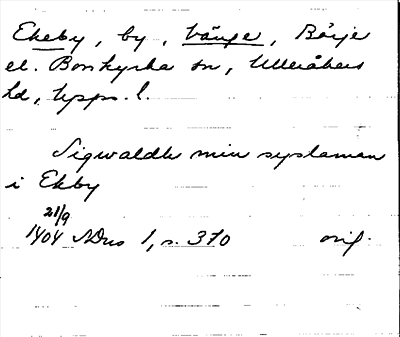 Ekeby, by, Vänge, Börje
el. Bonkyrka sn, Ulleråkers
hd, Upps. l.
Sigwaldh min syslaman
i Ekby
21/9
1404 SDns 1, s. 370 orig.